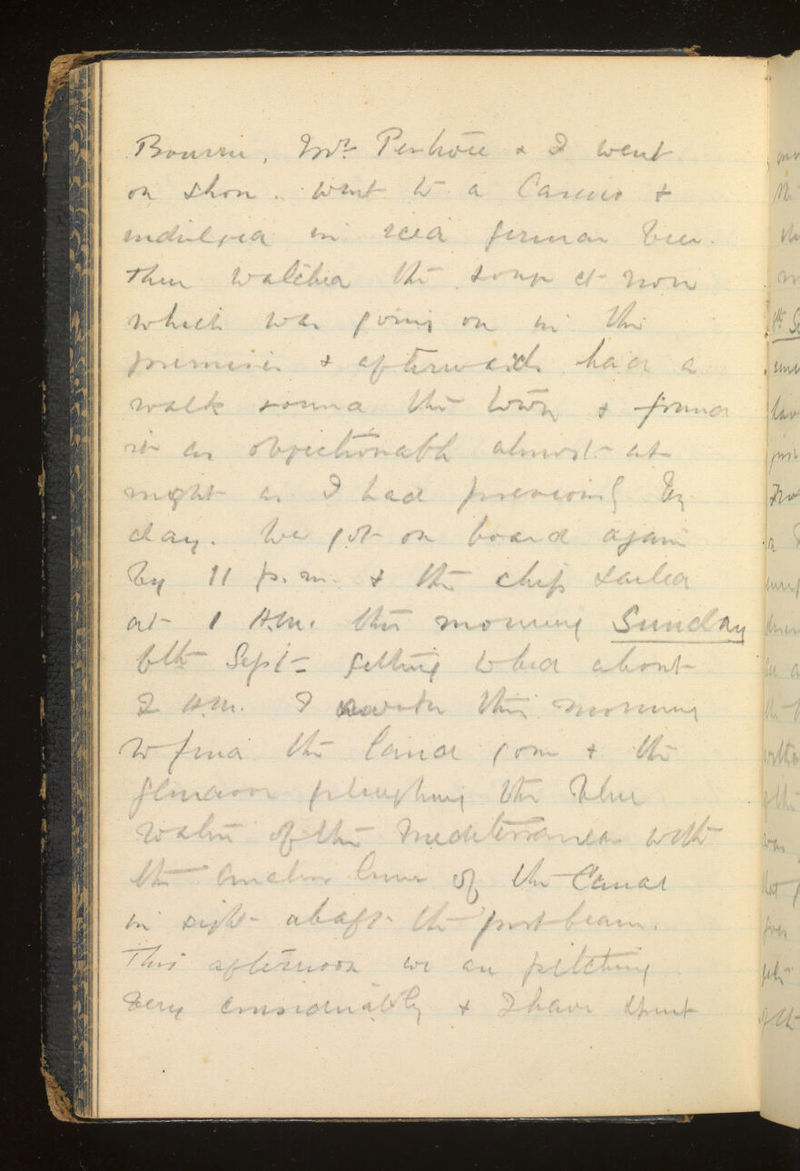 Mr. Penhole & I went
on shore. went to a Casino &
indulged in iced german beer.
Then watched the
which was going on in the
premises & afterwards had a
walk round the town & found
it as objectionable almost at
night as I had previously by
day. We got on board again
by 11 p.m. & the ship sailed
at 1 A.M. this morning Sunday
6th Sept= getting to bed about
2 A.M. I awoke this morning
to find the land gone & the
ploughing the blue
water of the Mediterranean with
the of the Canal
in sight abaft the port beam.
This afternoon we are pitching
very considerably & I have spent